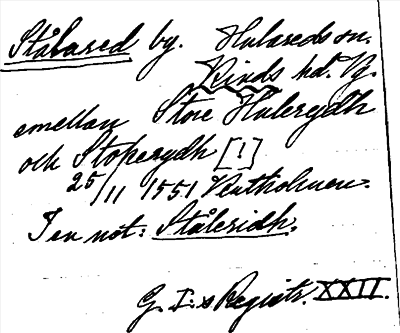 Stålared by. Hulareds sn.
Kinds hd. Vg.
emellan Store Hulerydh
och Stoperydh [!]
25/11 1551 Ventholmen.
I en not: Ståleridh.
G. I:s Registr. XXII.